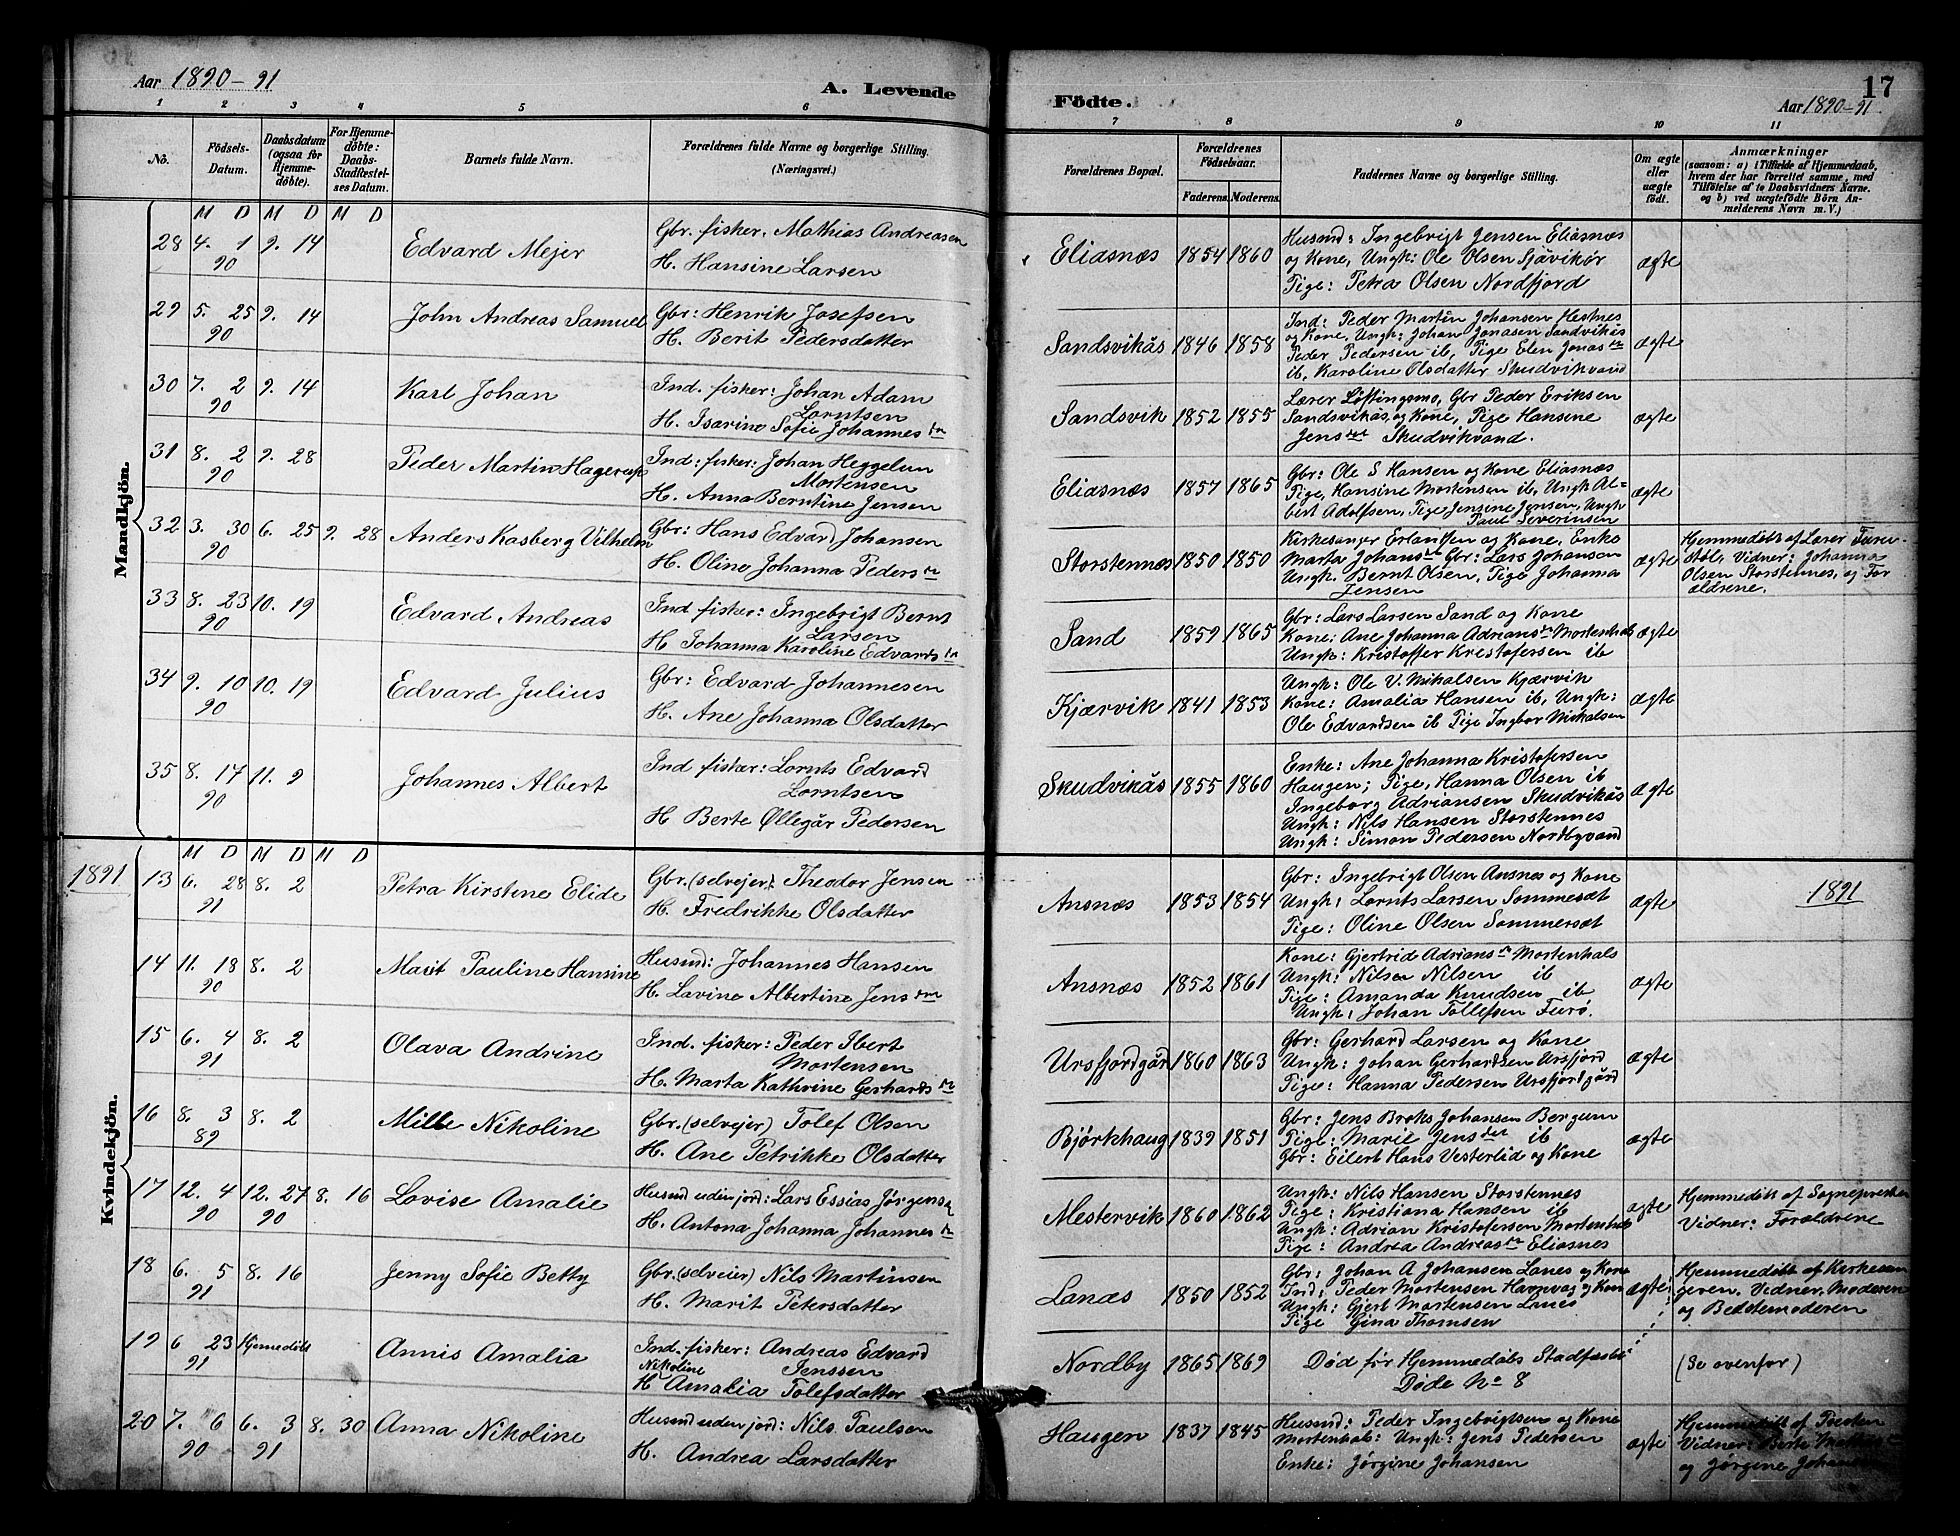 Aar 1890-91
A. Levende
Födte.
17
Aar 1890-91
1 2 3 4 5 6 7 8 9 10 11
No.
Födsels-Datum.
Daabsdatum (ogsaa for Hjemmedöbte).
For Hjemmedöbte: Daabs-Stadfæstelses Datum.
Barnets fulde Navn.
Forældrenes fulde Navne og borgerlige Stilling.
(Næringsvei.)
Forældrenes Bopæl.
Forældrenes Födselsaar.
Faderens. Moderens.
Faddernes Navne og borgerlige Stilling.
Om ægte eller uægte født.
Anmærkninger
(saasom: a) i Tilfælde af Hjemmedaab,
hvem der har forrettet samme, med
Tilföielse af to Daabsvidners Navne.
og b) ved uægtefödte Börn An-
melderens Navn m. V.)
Mandkjön.
M D M D M D
28 4. 1 90 9. 14
Edvard Mejer
Gbr. fisker, Mathias Andreasen
H. Hansine Larsen
Eliasnæs 1854 1860
Husmd: Ingebrigt Jensen Eliasnæs
og Kone, Ungk: Ole Olsen Sjåvikør
Pige: Petra Olsen Nordfjord
ægte
29 5. 25 90 9. 14
John Andreas Samuel
Gbr: Henrik Josefsen
H. Berit Pedersdatter
Sandsvikås 1846 1858
Ind: Peder Martin Johansen Hestnes
og Kone, Ungk: Johan Jonasen Sandvikås
Peder Pedersen ib, Pige Elen Jonasdtr
ib, Karoline Olsdatter Skudvikvand
ægte
30 7. 2 90 9. 14
Karl Johan
Ind. fisker: Johan Adam
Lorntsen
H. Isarine Sofie Johannesdtr
Sandsvik 1852 1855
Lærer Løftingsmo, Gbr Peder Eriksen
Sandsvikås og Kone, Pige Hansine
Jensdtr Skudvikvand.
ægte
31 8. 2 90 9. 28
Peder Martin Hagerup
Ind: fisker: Johan Heggelun
Mortensen
H. Anna Berntine Jensen
Eliasnæs 1857 1865
Gbr: Ole S Hansen og Kone Eliasnæs
Pige, Hansine Mortensen ib, Ungk Al-
bert Adolfsen, Pige Jensine Jensen, Ungk
Paul Severinsen
ægte
32 3. 30 90 6. 25 9. 28
Anders Kasberg Vilhelm
Gbr: Hans Edvard Johansen
H. Oline Johanna Pedersdtr
Storstennæs 1850 1850
Kirkesanger Erlansen og Kone, Enke
Marta Johansdtr Gbr: Lars Johansen
Ungk. Bernt Olsen, Pige Johanna
Jensen
ægte
Hjemmedøbt af Lærer Furu-
Vidner: Johanna
Olsen Storstennes, og For
ældrene.
33 8. 23 90 10. 19
Edvard Andreas
Ind. fisker: Ingebrigt Bernt
Larsen
H Johanna Karoline Edvardsdtr
Sand 1859 1865
Gbr: Lars Larsen Sand og Kone
Kone: Ane Johanna Adriansdtr Mortenhals
Ungk: Kristoffer Kristofersen ib
ægte
34 9. 10 90 10. 19
Edvard Julius
Gbr: Edvard Johannesen
H. Ane Johanna Olsdatter
Kjærvik 1841 1853
Ungk: Ole V. Mikalsen Kjærvik
Kone: Amalia Hansen ib, Ungk:
Ole Edvardsen ib Pige Ingbor Mikalsen
ægte
35 8. 17 90 11. 9
Johannes Albert
Ind fisker: Lornts Edvard
Lorntsen
H Berte Øllegår Pedersen
Skudvikås 1855 1860
Enke: Ane Johanna Kristofersen
Haugen; Pige, Hanna Olsen ib
Ingeborg Adriansen Skudvikås
Ungk: Nils Hansen Storstennes
Ungk: Simon Pedersen Nordbyvand
ægte
1891
Kvindekjön.
M D M D M D
1891
13 6. 28 91 8. 2
Petra Kirstine Elide
Gbr. (selvejer): Theodor Jensen
H. Fredrikke Olsdatter
Ansnæs 1853 1854
Gbr: Ingebrigt Olsen Ansnes og Kone
Ungk: Lornts Larsen Sommersæt
Pige: Oline Olsen Sommersæt
ægte
14 11. 18 90 8. 2
Marit Pauline Hansine
Husmd: Johannes Hansen
H. Lavine Albertine Jensdtr
Ansnæs 1852 1861
Kone: Gjertrid Adriansdtr Mortenhals
Ungk: Nilsen Nilsen ib
Pige: Amanda Knudsen ib
Ungk: Johan Tollefsen Furø.
ægte
15 6. 4 91 8. 2
Olava Andrine
Ind. fisker: Peder Ibert
Mortensen
H. Marta Kathrine Gerhardsdtr
Ursfjordgår 1860 1863
Gbr: Gerhard Larsen og Kone
Ungk: Johan Gerhardsen Ursfjord
Pige: Hanna Pedersen Ursfjordgård
ægte
16 8. 3 89 8. 2
Mille Nikoline
Gbr. (selvejer) Tolef Olsen
H. Ane Petrikke Olsdatter
Bjørkhaug 1839 1851
Gbr: Jens Broks Johansen Bergum
Pige: Marie Jensdtr ib
Gbr: Eilert Hans Vesterlid og Kone
ægte
17 12. 4 90 12. 27 90 8. 16
Lovise Amalie
Husmd uden jord: Lars Essias Jørgens
H. Antona Johanna Johannesdtr
Mestervik 1860 1862
Ungk: Nils Hansen Storstennes
Pige: Kristiana Hansen ib
Ungk: Adrian Kristofersen Mortenhals
Pige: Andrea Andreasdtr Eliasnes
ægte
Hjemmedøbt af Sognepresten
Vidner: Forældrene
18 6. 5 91 8. 16
Jenny Sofie Betty
Gbr. (selveier) Nils Martinsen
H. Marit Petersdatter
Lanæs 1850 1852
Gbr: Johan A Johansen Lanes og Kone
Ind: Peder Mortensen og Kon
Ungk: Gjert Mortensen Lanes
Pige Gina Thomsen
ægte
Hjemmedøbt af Kirkesan
geren. Vidner, Moderen
og Bedstemoderen
19 6 23 91 Hjemmedøbt
Annis Amalia
Ind. fisker: Andreas Edvard
Jenssen
Nikoline
H Amalia Tolefsdatter
Nordby 1865 1869
Død før Hjemmedåbs Stadfæst
Døde No 8
(Se ovenfor)
20 7. 6 90 6. 3 91 8. 30
Anna Nikoline
Husmd uden jord: Nils Paulsen
H. Andrea Larsdatter
Haugen 1837 1845
Husmd: Peder Ingebrigtsen og Kone
Mortenhals: Ungk: Jens Pedersen
Enke: Jørgine Johansen
ægte
Hjemmedøbt af Presten
Vidner: Berte
og Jørgine